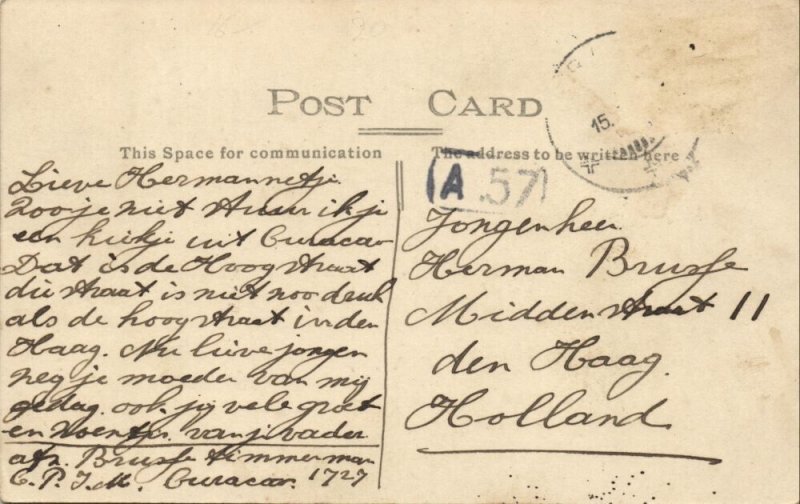 POST CARD
This Space for communication
The address to be written here
15.
A 57
Lieve Hermannetje
Zoo je niet stuur ik je
een kiekje uit Curacao
Dat is de Hoogstraat
die straat is niet zoo druk
als de hoogstraat in den
Haag. Nu lieve jongen
zeg je moeder van mij
gedag. ook jij vele groet
en zoentjes van je vader
afz. Brusse timmerman
C.P.I.M. Curacao. 1727
Jongenheer
Herman Brusse
Middenstraat 11
den Haag.
Holland